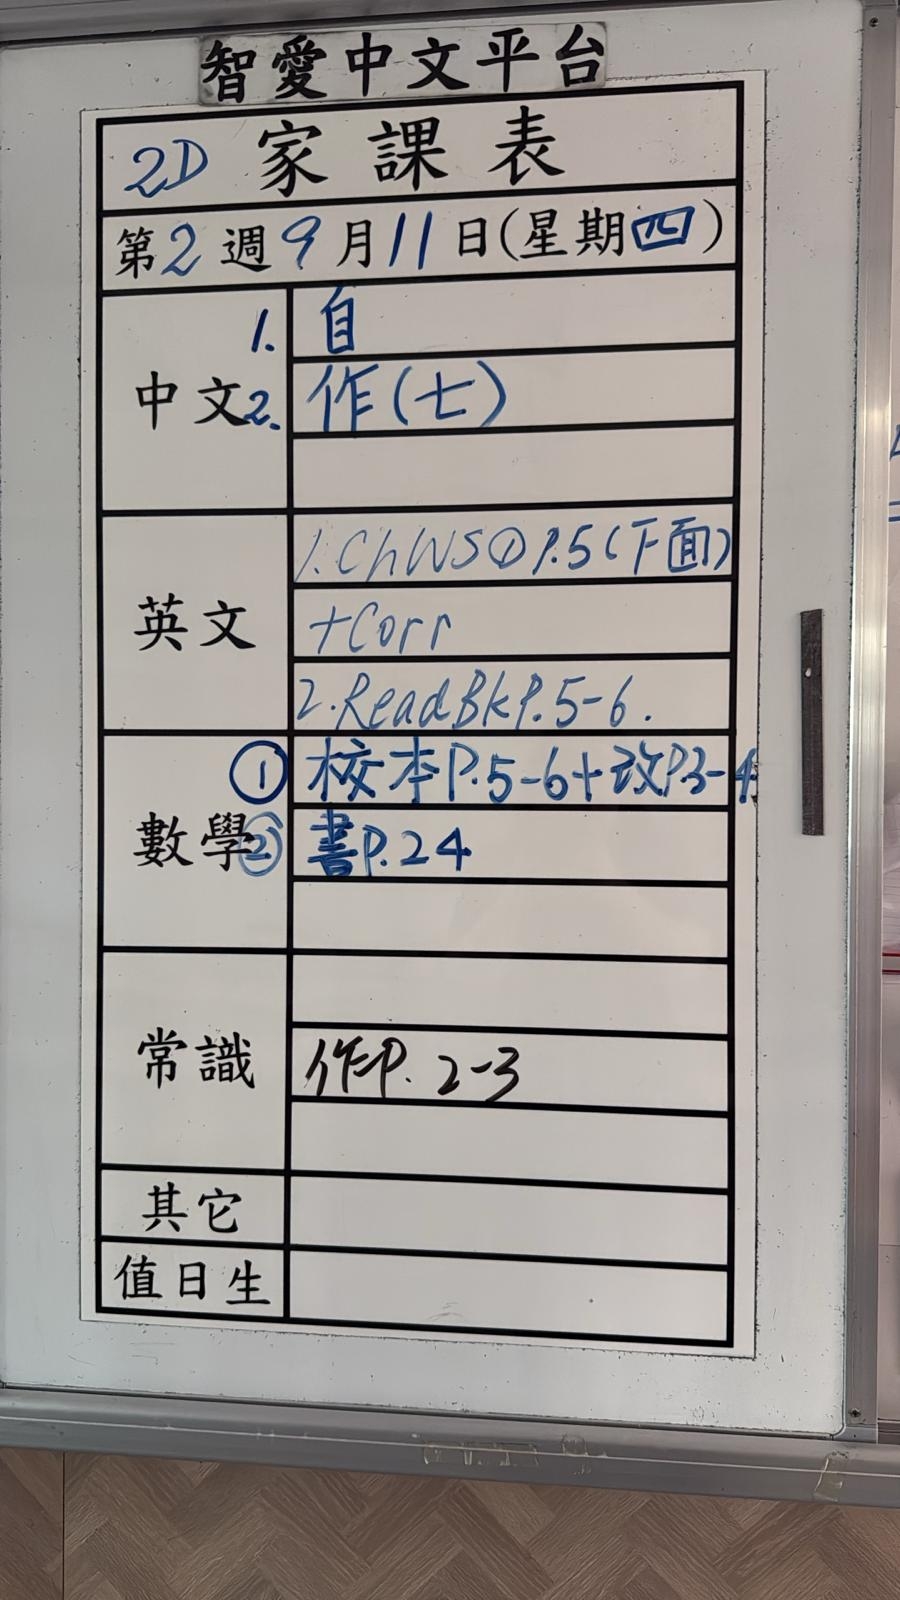 智愛中文平台
2D 家課表
第2週9月11日(星期四)
中文
1. 自
2. 作(七)
英文
1.ChWS①P.5(下面)
+Corr
2.ReadBkP.5-6.
數學
① 校本P.5-6+改P.3-4
② 書P.24
常識
作P.2-3
其它
值日生